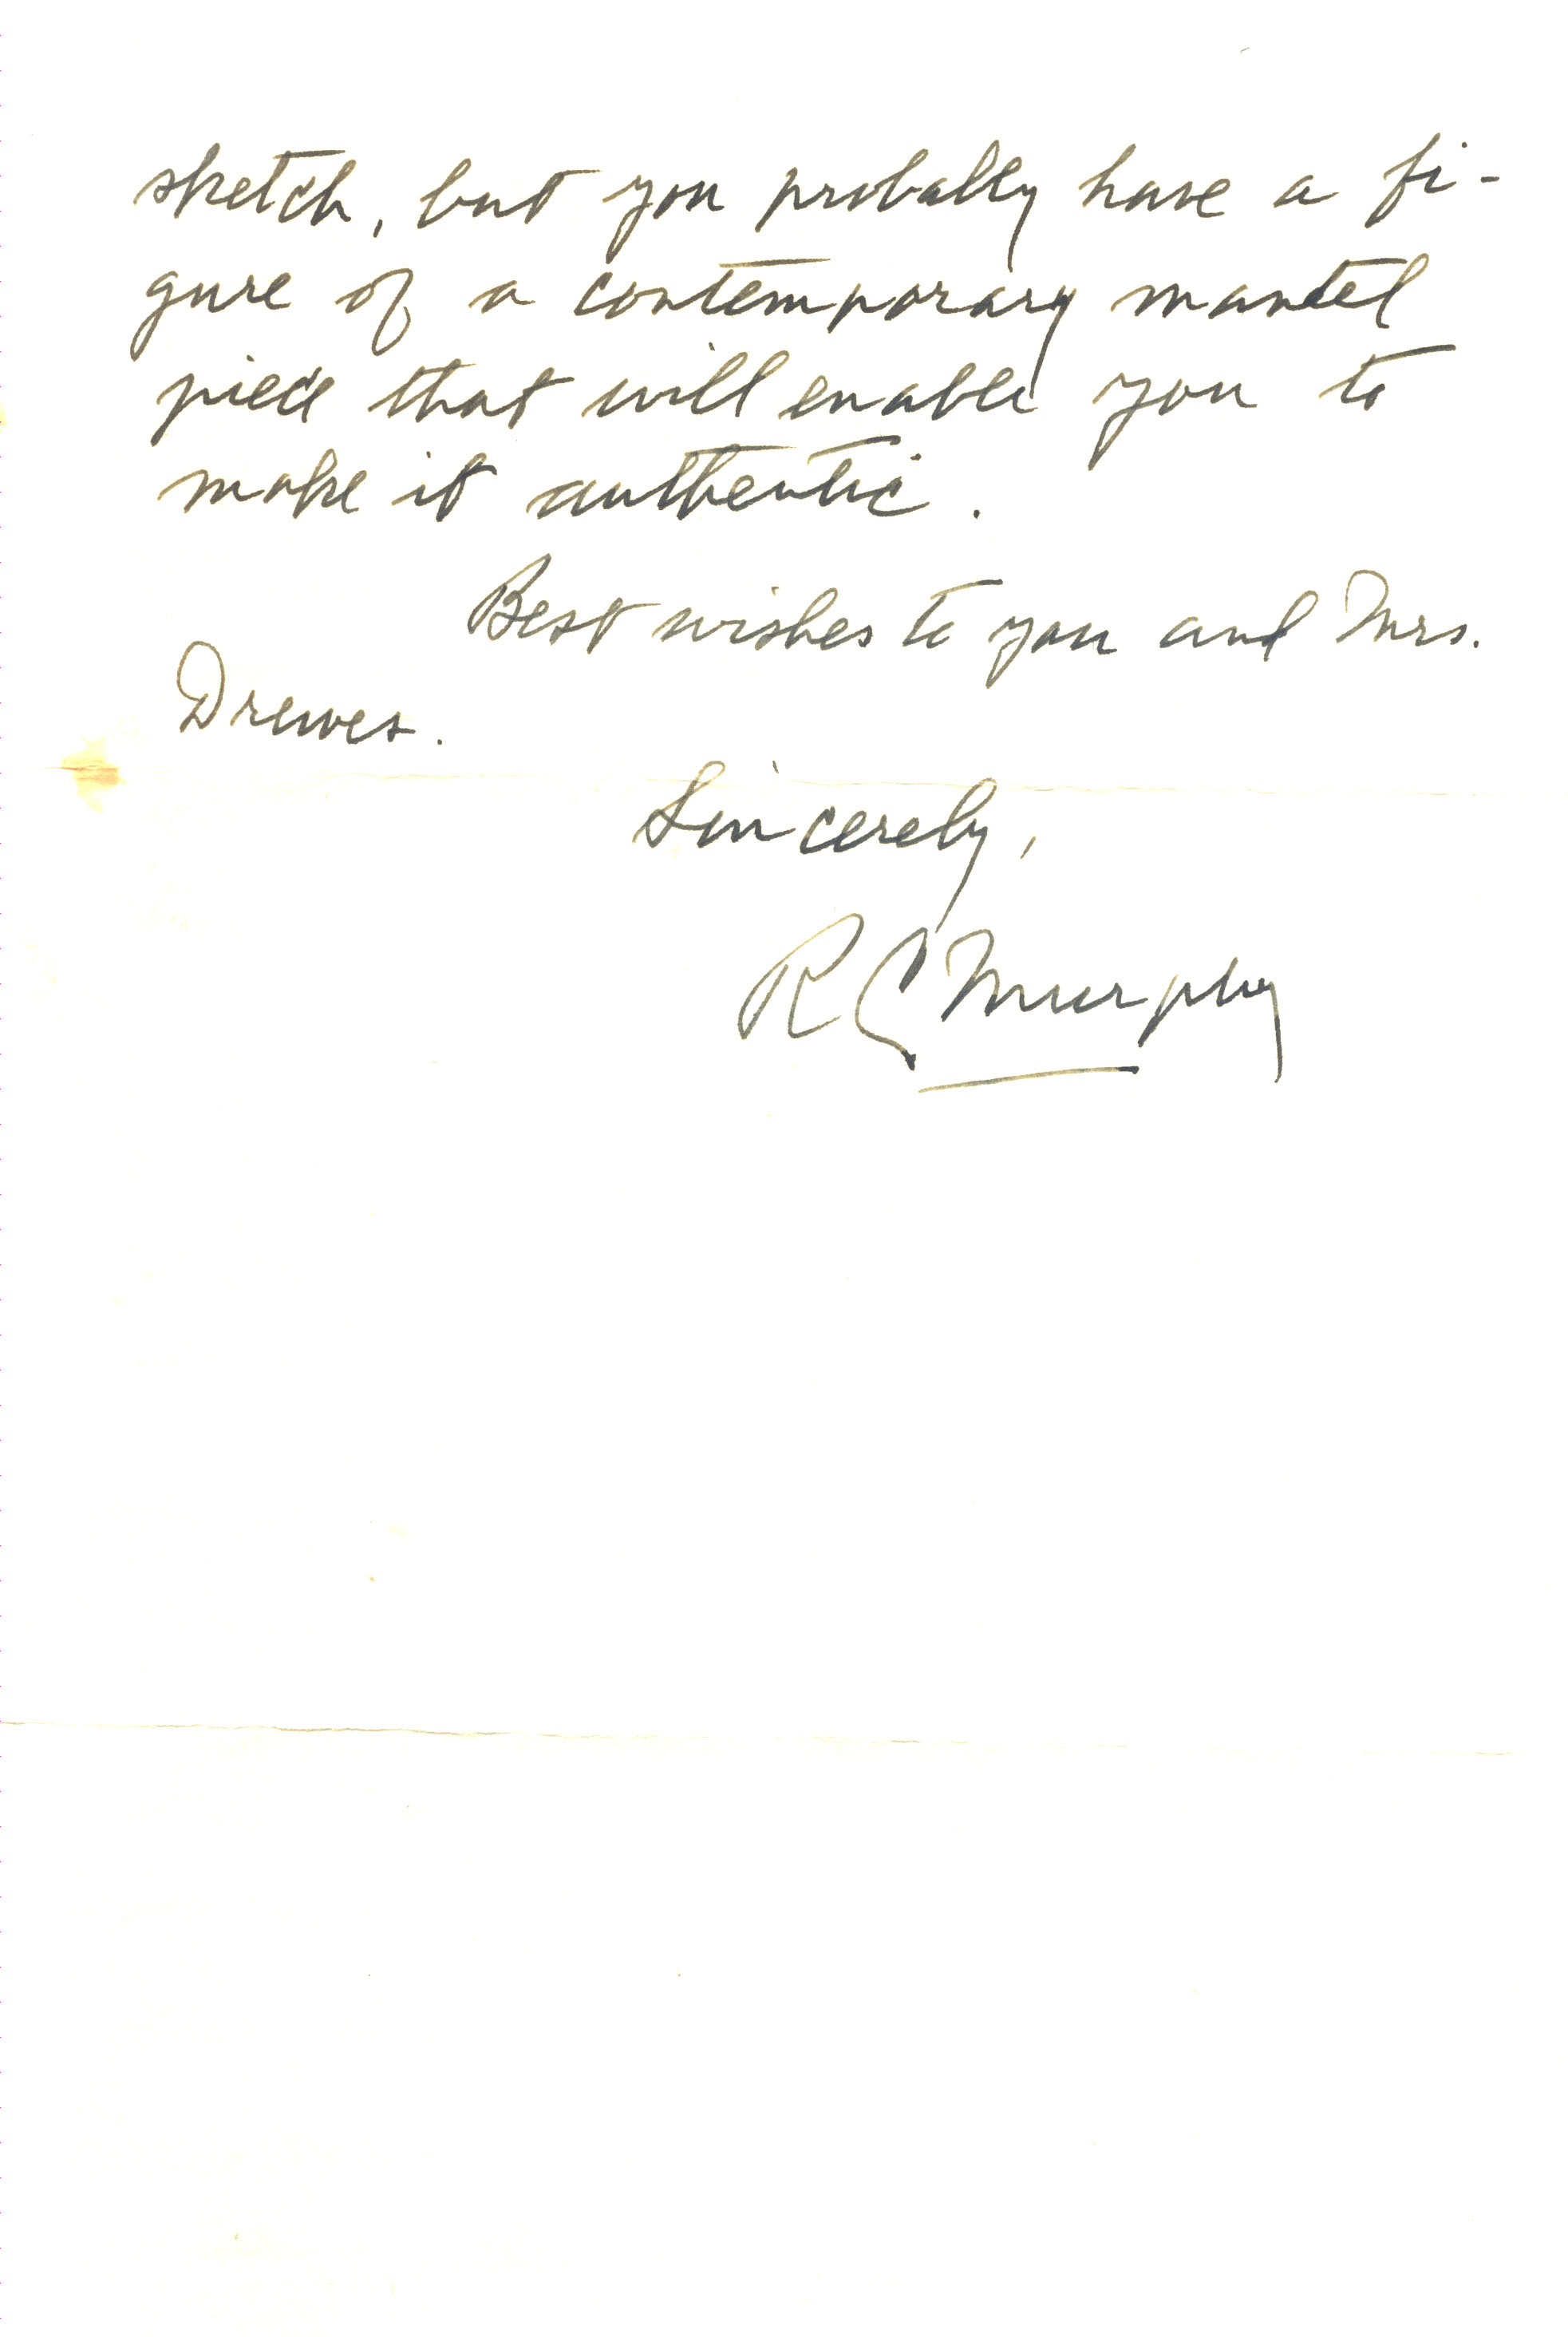 sketch, but you probably have a fi-
gure of a contemporary mantel
piece that will enable you to
make it authentic.
Best wishes to you and Mrs.
Drewes.
Sincerely,
R C Murphy